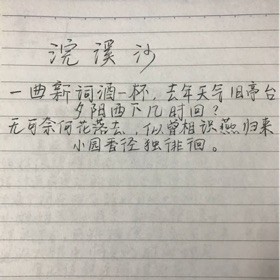 浣溪沙
一曲新词酒一杯，去年天气旧亭台
夕阳西下几时回？
无可奈何花落去，似曾相识燕归来
小园香径独徘徊。